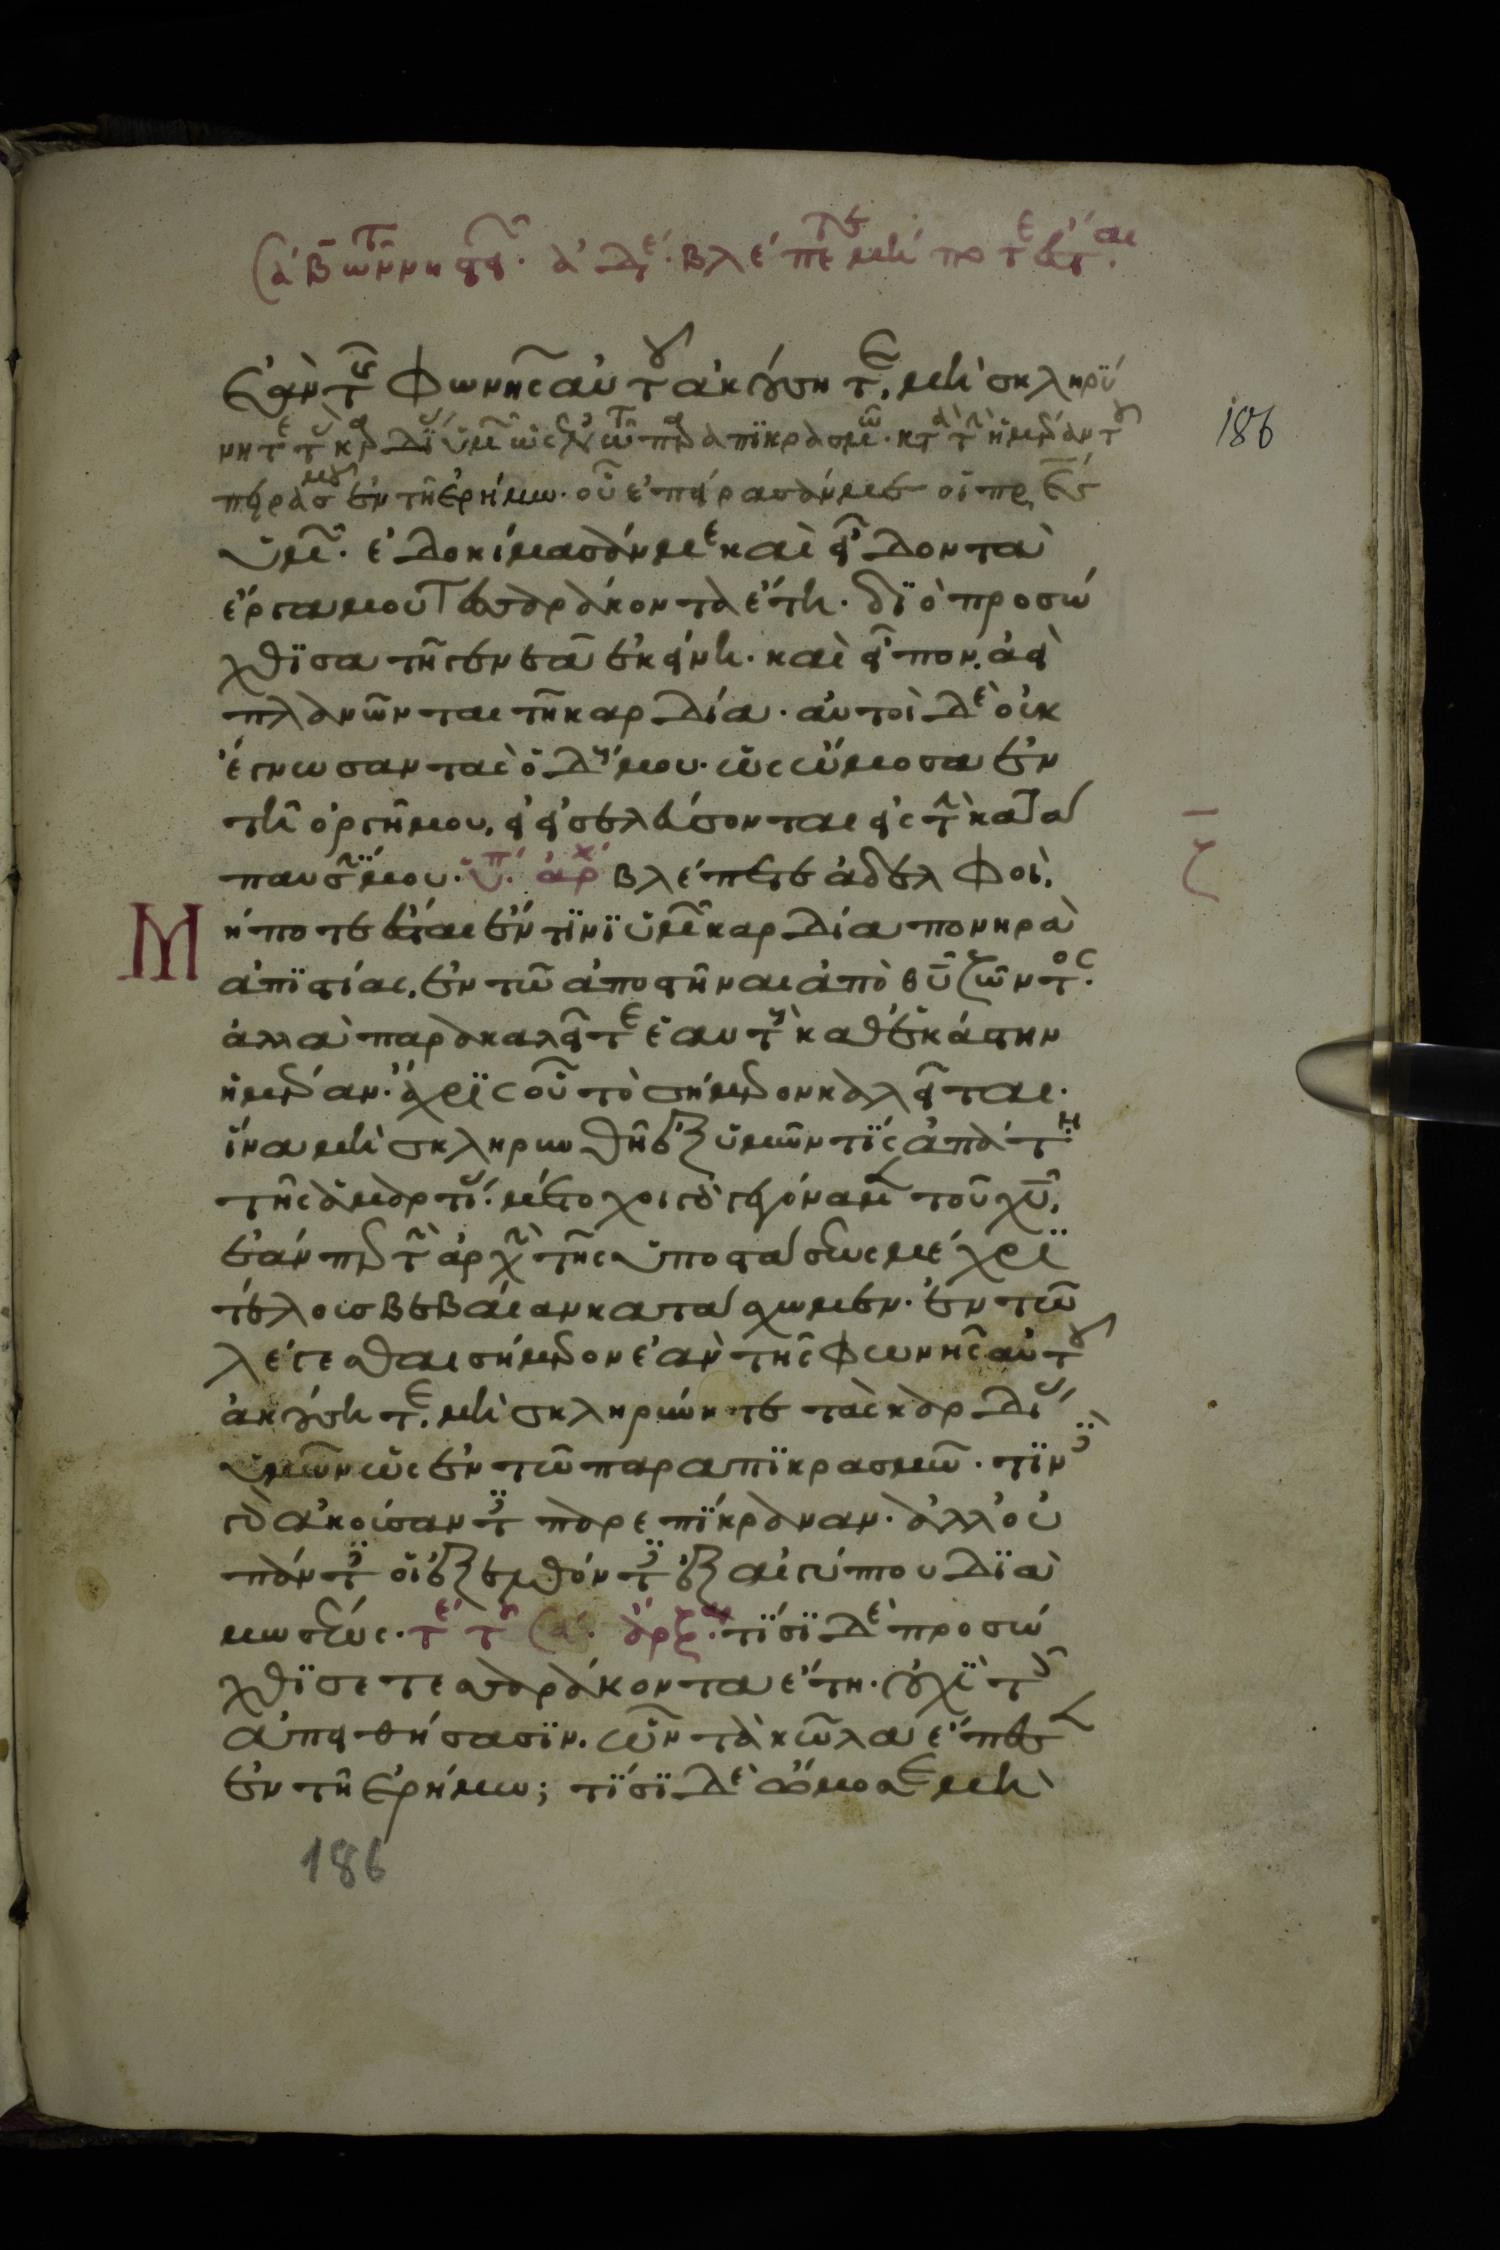 Σα β τῶν νηστει. ἀδε. βλέπετε μή ποτε ἔσται.
Ἐὰν τῆς φωνῆς αὐτοῦ ἀκούσητε, μὴ σκληρύ
νητε τὰς καρδί ὑμῶν ὡς ἐν τῶ παραπϊκρασμῶ. κατὰ τὴν ἡμέραν τοῦ
πειρασμοῦ ἐν τῆ ἐρήμω. οὗ ἐπείρασάν με οἱ πρες
ὑμῶν. ἐδοκίμασάν με καὶ εἶδον τὰ
ἔργα μου τεσσαράκοντα ἔτη. δϊὸ προσώ
χθϊσα τῆ γενεᾶ ἐκείνη. καὶ εἶπον. ἀεὶ
πλανῶνται τῆ καρδία. αὐτοὶ δὲ οὐκ
ἔγνωσαν τὰς ὁδούς μου. ὡς ὤμοσα ἐν
τῆ ὀργῆ μου, εἰ εἰσελεύσονται εἰς τὴν κατά
παυσϊν μου. ὑπ. ἀρχ βλέπετε ἀδελφοὶ,
Μ
ήποτε ἔσται ἐν τϊνϊ ὑμῶν καρδία πονηρὰ
ἀπϊστίας, ἐν τῶ ἀποστῆναι ἀπὸ θῦ ζῶντος.
ἀλλὰ παρακαλεῖτε ἑαυτοὺς καθ ἑκάστην
ἡμέραν. ἄχρϊς οὗ τὸ σήμερον καλεῖται.
ἵνα μὴ σκληρυνθῆ ἐξ ὑμῶν τϊς ἀπάτη
τῆς ἁμαρτί. μέτοχοι γὰρ γεγόναμεν τοῦ χῦ,
ἐάνπερ τὴν ἀρχὴν τῆς ὑποστάσεως μέχρϊ
τέλους βεβαίαν κατάσχωμεν. ἐν τῶ
λέγεσθαι σήμερον ἐὰν τῆς φωνῆς αὐτοῦ
ἀκούσητε, μὴ σκληρύνητε τὰς καρδί
ὑμῶν ὡς ἐν τῶ παραπϊκρασμῶ. τϊνὲς
γὰρ ἀκούσαντες παρεπϊκραναν. ἀλλ οὐ
πάντες οἱ ἐξελθόντες ἐξ αἰγύπτου δϊὰ
μωσέως. τε τῆ Σα. ἀρξ. τϊσϊ δὲ προσώ
χθϊσε τεσσαράκοντα ἔτη. οὐχϊ τοῖς
ἀπειθήσασϊν. ὧν τὰ κῶλα ἔπεσεν
ἐν τῆ ἐρήμω; τϊσϊ δὲ ὤμοσε μὴ
186
ζ
186